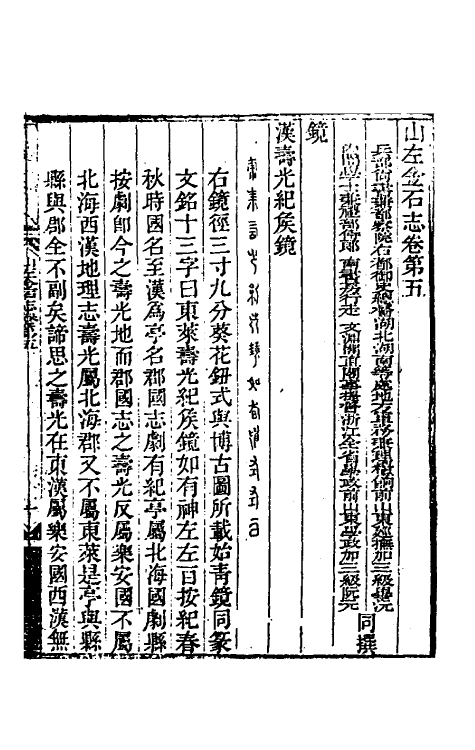 山左金石志卷第五
兵部尚書兼都察院右都御史總督湖北湖南等處地方軍務兼理糧餉前山東巡撫加三級畢沅
內閣學士兼禮部侍郎南書房行走文淵閣直閣事提督浙江全省學政前山東學政加三級阮元
同撰
鏡
漢壽光紀矦鏡
右鏡徑三寸九分葵花鈕式與博古圖所載始青鏡同篆
文銘十三字曰東萊壽光紀矦鏡如有神左左百按紀春
秋時國名至漢爲亭名郡國志劇有紀亭屬北海國劇縣
按劇郎今之壽光地而郡國志之壽光反屬樂安國不屬
北海西漢地理志壽光屬北海郡又不屬東萊是亭與縣
縣與郡全不副矣諦思之壽光在東漢屬樂安國西漢無